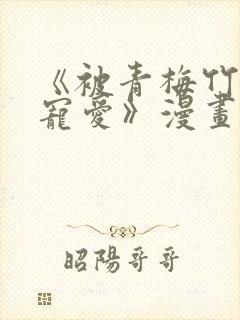 《被青梅竹
寵愛》漫畫
昭陽哥哥